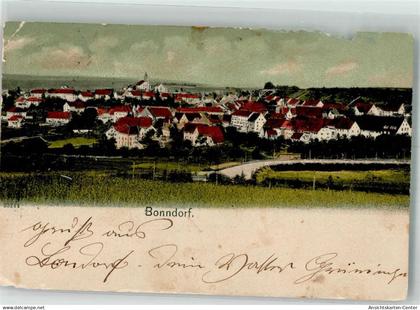 Bonndorf.
Gruß aus
Bonndorf. Dein Walter Grüninger
www.Ansichtskarten-Center.de